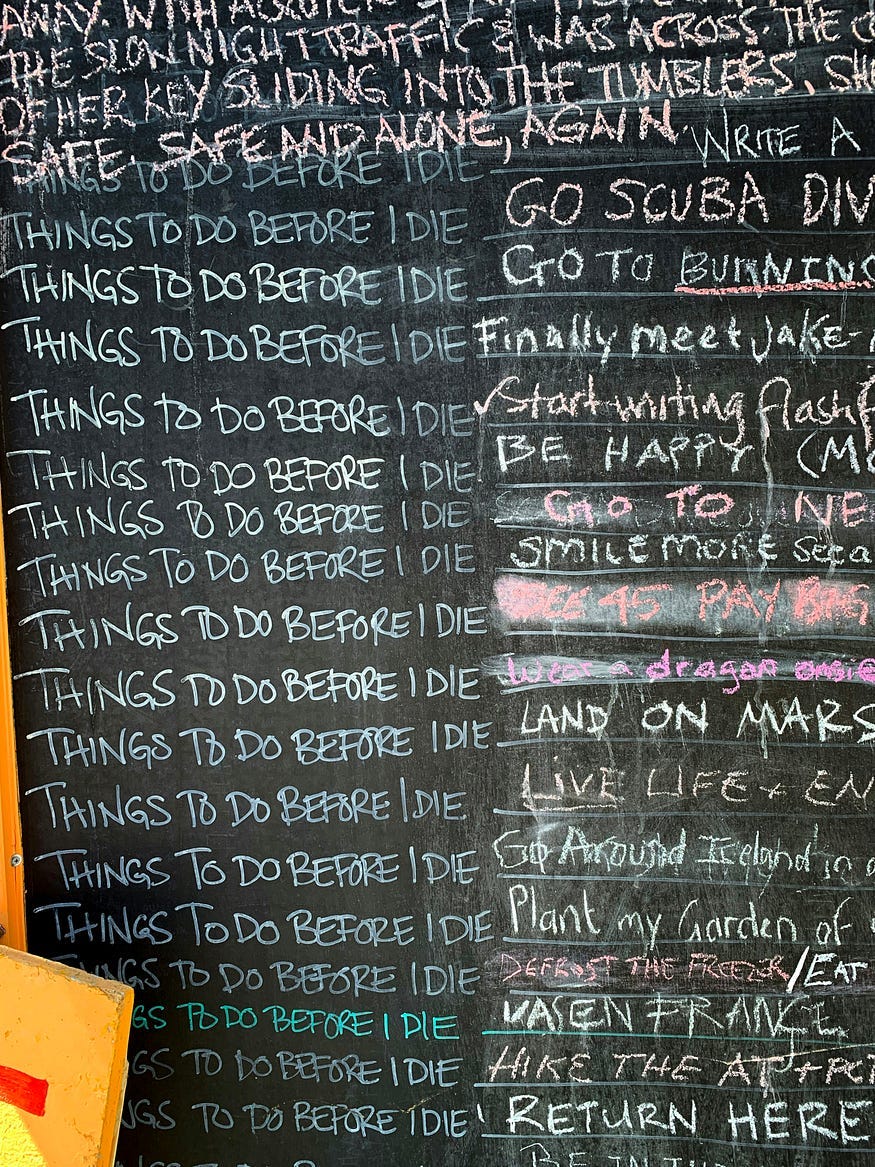 AWAY. WITH ABSOLUTE
THE SLOW NIGHT TRAFFIC & WAS ACROSS. THE
OF HER KEY SLIDING INTO THE TUMBLERS. SHE
SAFE. SAFE AND ALONE, AGAIN.
THINGS TO DO BEFORE I DIE WRITE A
THINGS TO DO BEFORE I DIE GO SCUBA DIV
THINGS TO DO BEFORE I DIE GO TO BURNING
THINGS TO DO BEFORE I DIE Finally meet Jake-
THINGS TO DO BEFORE I DIE ✓Start writing flash f
THINGS TO DO BEFORE I DIE BE HAPPY (MO
THINGS TO DO BEFORE I DIE GO TO NE
THINGS TO DO BEFORE I DIE SMILE MORE
THINGS TO DO BEFORE I DIE SEE 45 PAY
THINGS TO DO BEFORE I DIE Wear a dragon onsie
THINGS TO DO BEFORE I DIE LAND ON MARS
THINGS TO DO BEFORE I DIE LIVE LIFE + EN
THINGS TO DO BEFORE I DIE Go Around Iceland in a
THINGS TO DO BEFORE I DIE Plant my Garden of
THINGS TO DO BEFORE I DIE DEFROST THE FREEZER/EAT
GS TO DO BEFORE I DIE FRANCE
GS TO DO BEFORE I DIE HIKE THE AT +
NGS TO DO BEFORE I DIE RETURN HERE
THINGS TO DO BEFORE I DIE BE IN